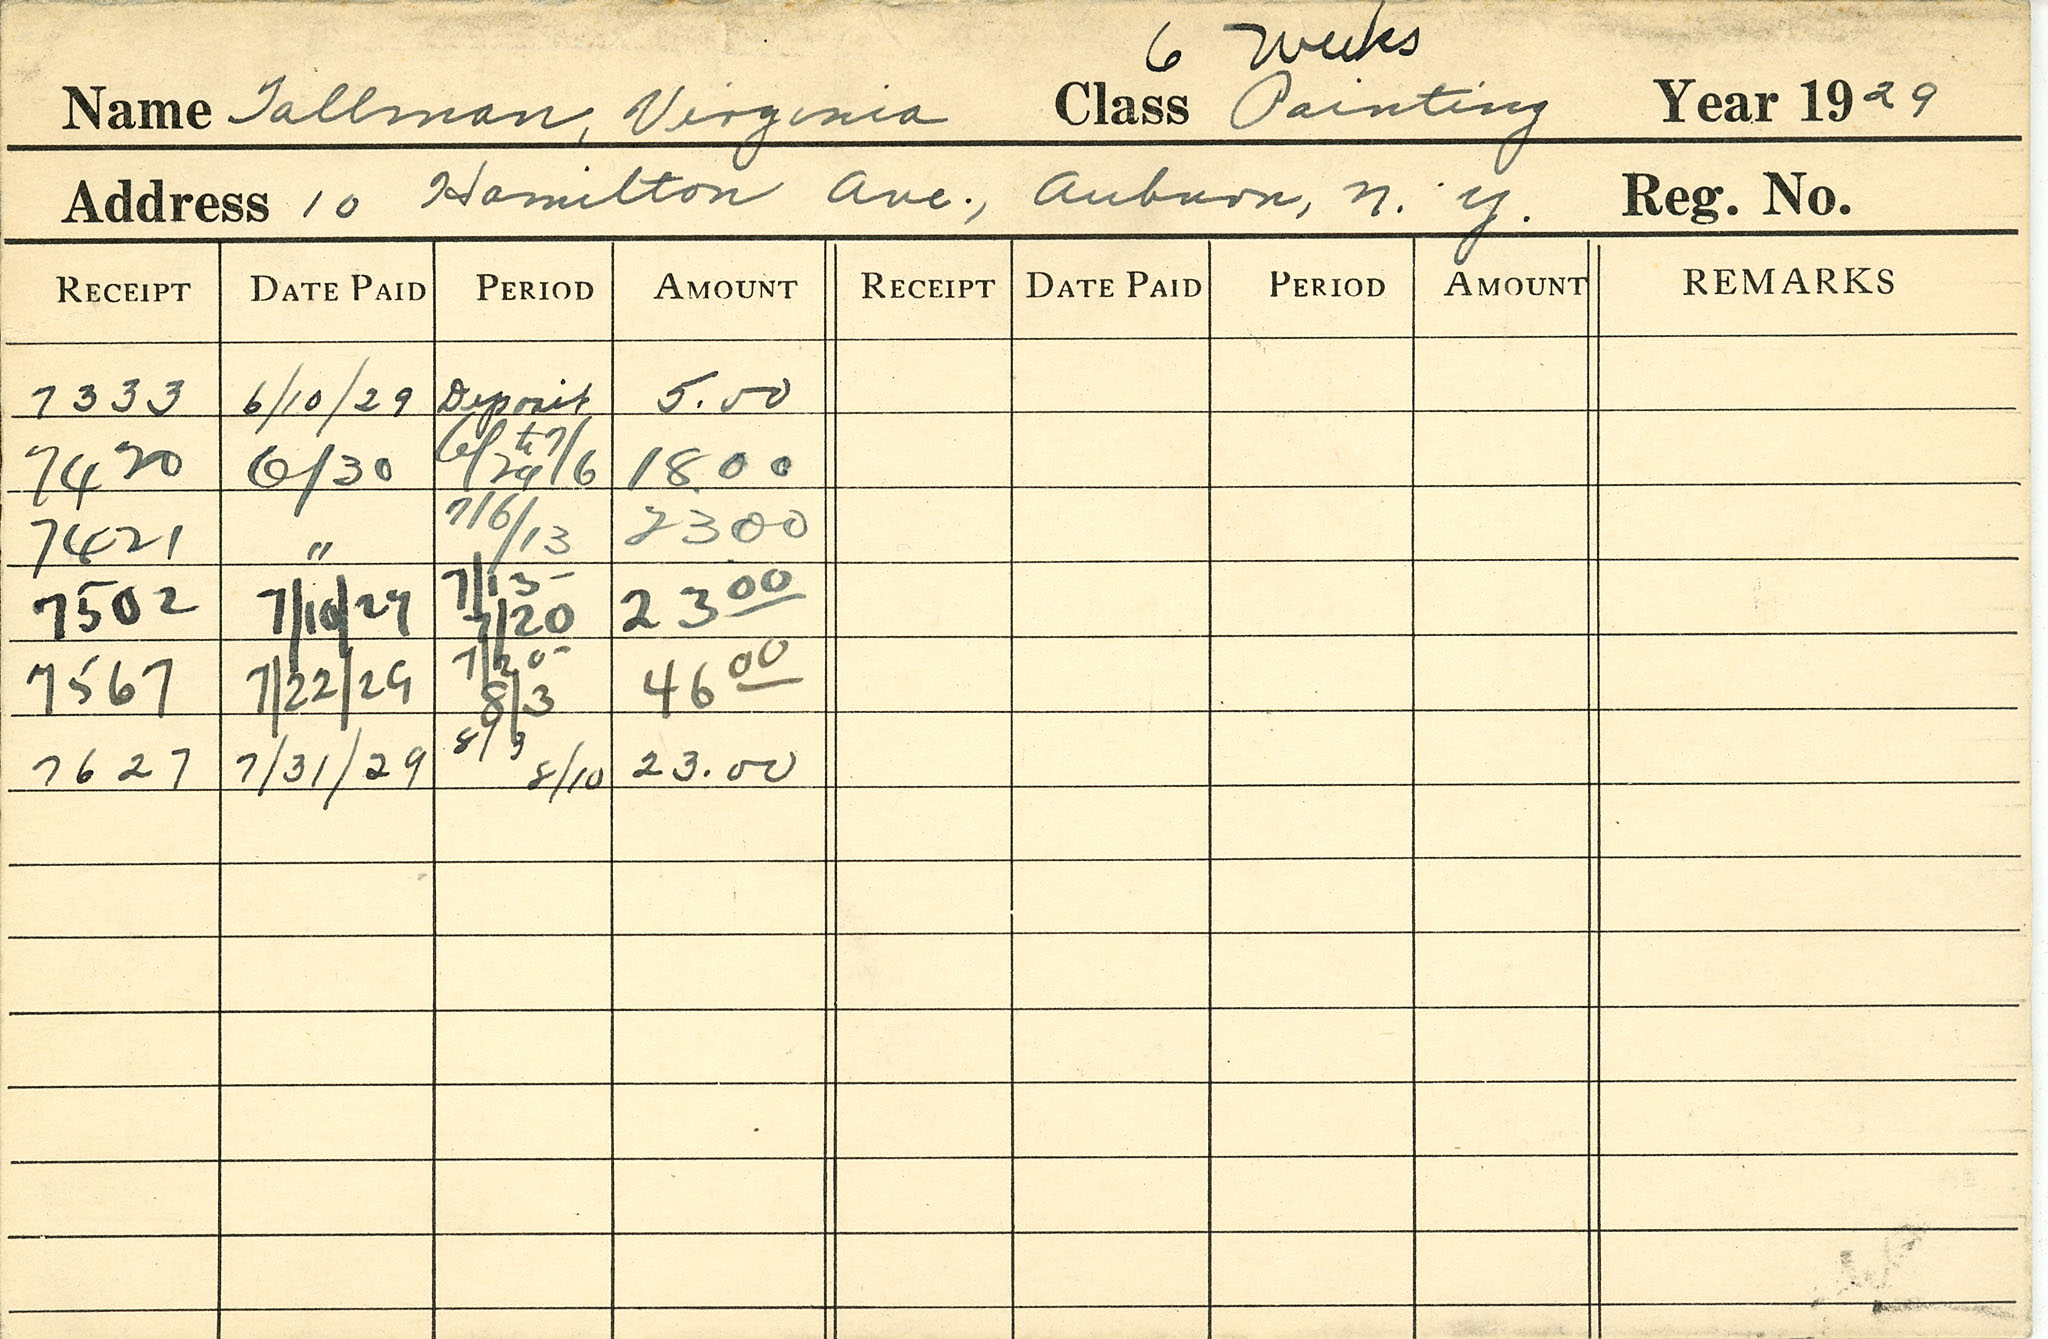 6 Weeks
Name Tallman, Virginia Class Painting Year 1929
Address 10 Hamilton Ave., Auburn, N. Y. Reg. No.
RECEIPT DATE PAID PERIOD AMOUNT RECEIPT DATE PAID PERIOD AMOUNT REMARKS
7333 6/10/29 Deposit 5.00
7420 6/30 6/29 to 7/6 18.00
7421 " 7/6/13 23 00
7502 7/10/29 7/13- 7/20 23 00
7567 7/22/29 7/20- 8/3 46 00
7627 7/31/29 8/3 8/10 23.00